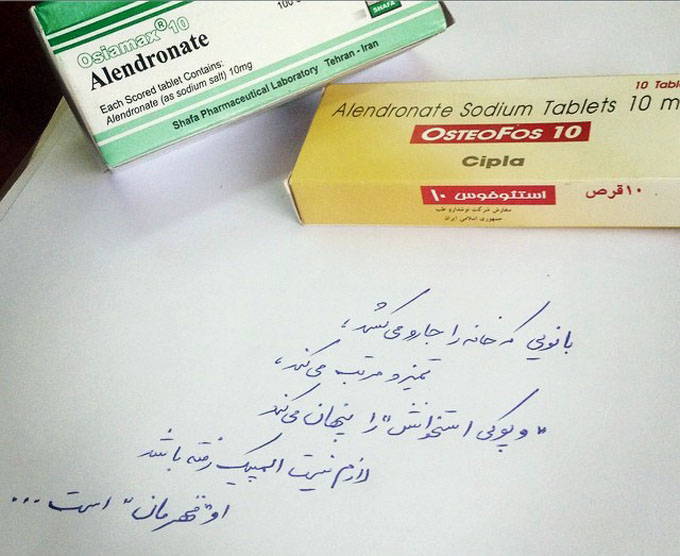 Osiamax® 10
Alendronate
Each Scored tablet Contains:
Alendronate (as sodium salt) 10mg
Shafa Pharmaceutical Laboratory Tehran - Iran
100
SHAFA
10 Tabl
Alendronate Sodium Tablets 10 m
OSTEOFOS 10
Cipla
استئوفوس ۱۰
۱۰ قرص
سفارش شرکت نوشدارو طب
جمهوری اسلامی ایران
بانویی که خانه را جارو می‌کشد،
تمیز و مرتب می‌کند،
"و پوکی استخوانش" را پنهان می‌کند
لازم نیست المپیک رفته باشد
او "قهرمان" است ...